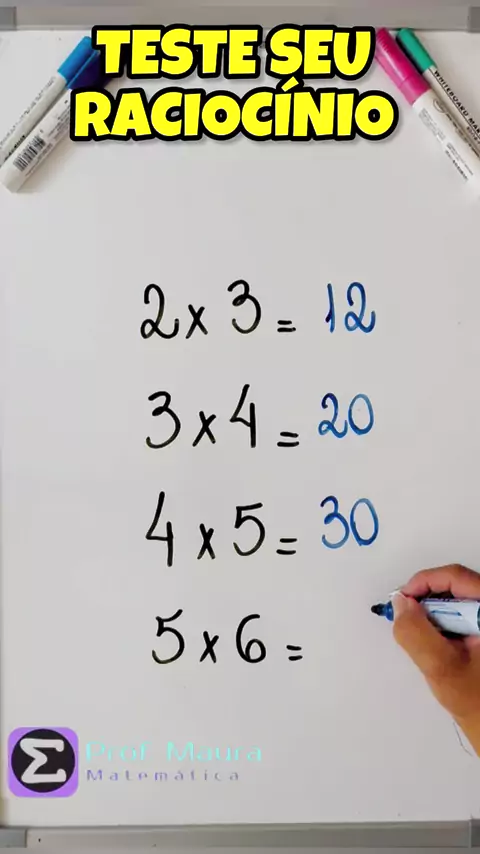 TESTE SEU
RACIOCÍNIO
WHITEBOARD MA
2 x 3 = 12
3 x 4 = 20
4 x 5 = 30
5 x 6 =
Σ Prof. Maura
Matemática